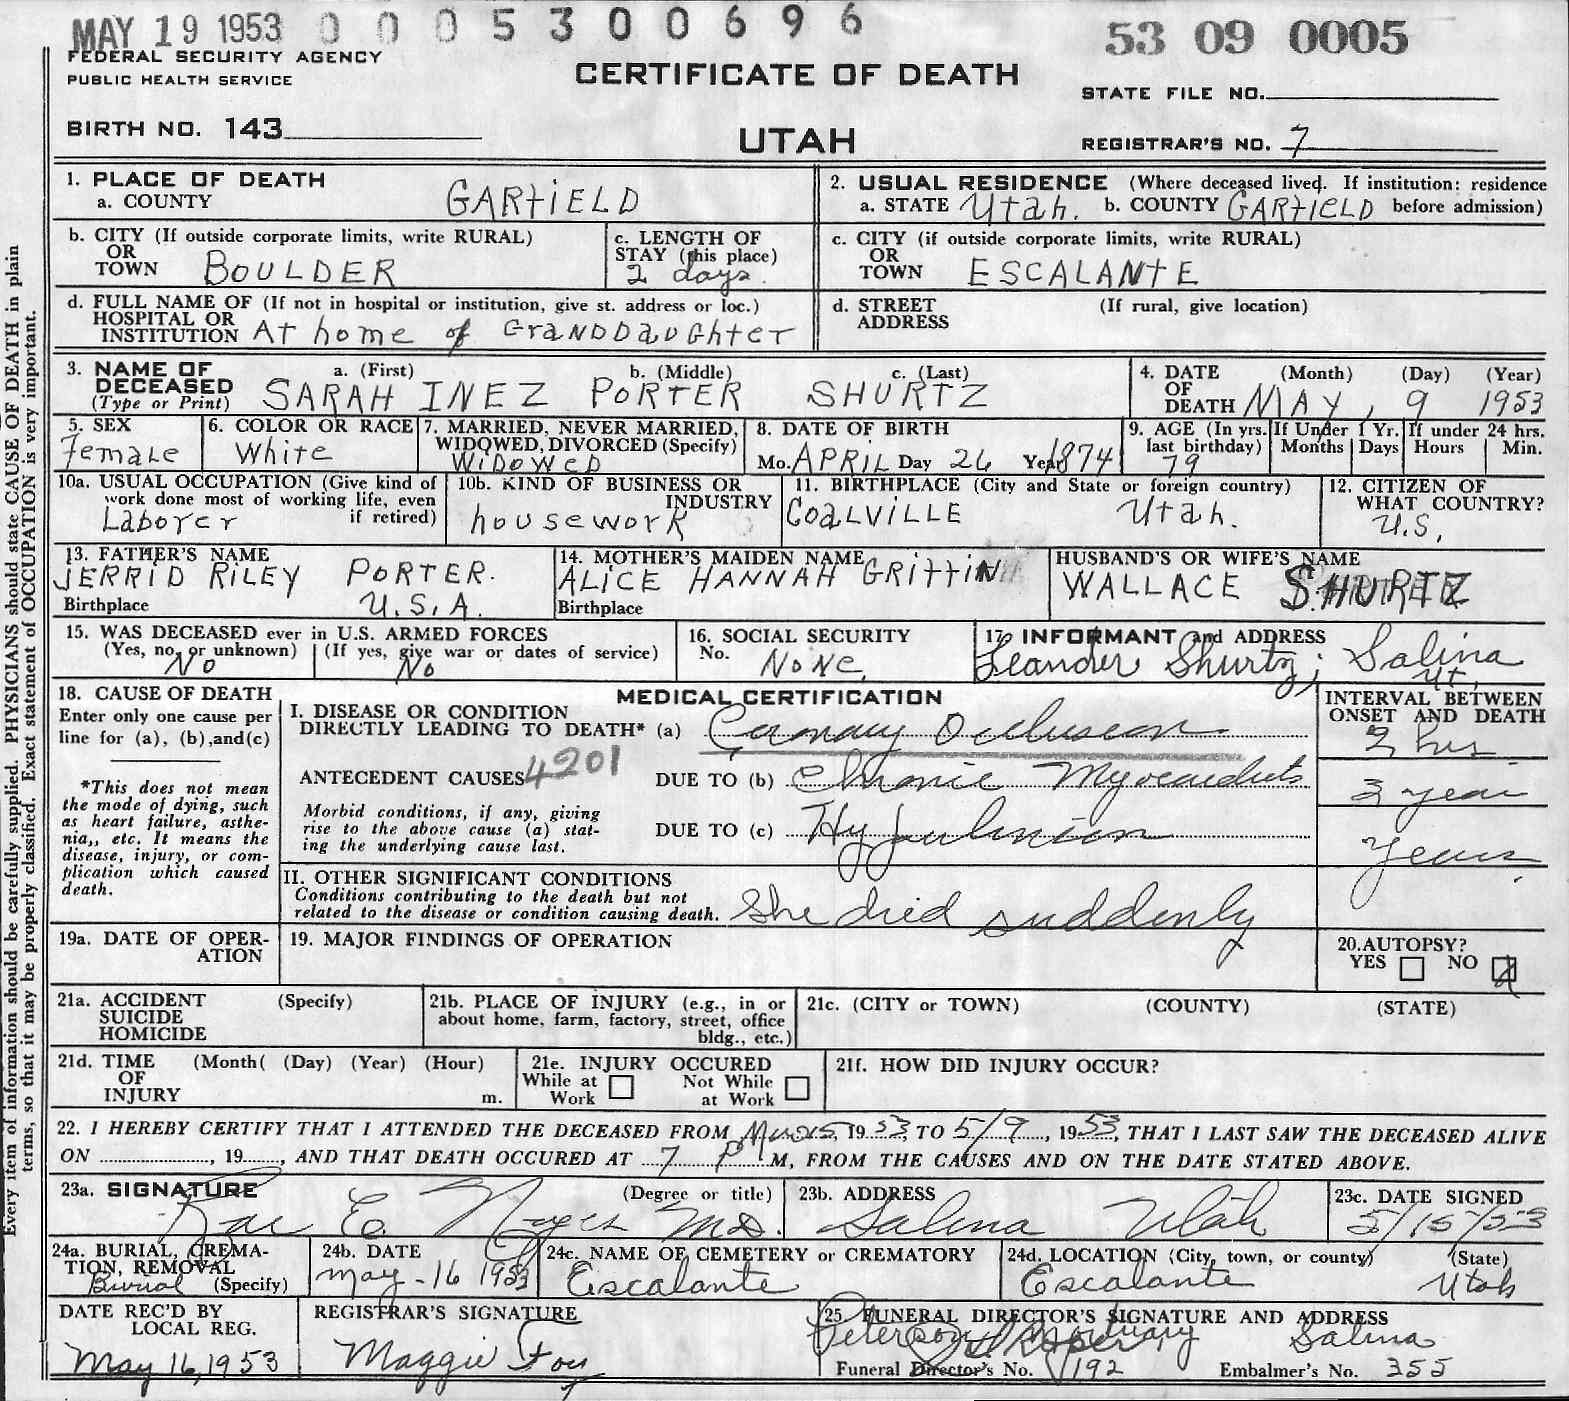 MAY 19 1953 0 0 0 5 3 0 0 6 9 6 53 09 0005
FEDERAL SECURITY AGENCY
PUBLIC HEALTH SERVICE
CERTIFICATE OF DEATH
STATE FILE NO.
BIRTH NO. 143
UTAH
REGISTRAR'S NO. 7
Every item of information should be carefully supplied. PHYSICIANS should state CAUSE OF DEATH in plain
terms, so that it may be properly classified. Exact statement of OCCUPATION is very important.
1. PLACE OF DEATH
a. COUNTY GARfiELD
2. USUAL RESIDENCE (Where deceased lived. If institution: residence
a. STATE Utah. b. COUNTY GARfiELD before admission)
b. CITY (If outside corporate limits, write RURAL)
OR
TOWN BOULDER
c. LENGTH OF
STAY (this place)
2 days
c. CITY (if outside corporate limits, write RURAL)
OR
TOWN ESCALANtE
d. FULL NAME OF (If not in hospital or institution, give st. address or loc.)
HOSPITAL OR
INSTITUTION At home of GraNDDaUGhter
d. STREET (If rural, give location)
ADDRESS
3. NAME OF a. (First) b. (Middle) c. (Last)
DECEASED
(Type or Print) SARAH INEZ PORTER SHURTZ
4. DATE (Month) (Day) (Year)
OF
DEATH MAY, 9 1953
5. SEX
Female
6. COLOR OR RACE
White
7. MARRIED, NEVER MARRIED,
WIDOWED, DIVORCED (Specify)
WiDOWED
8. DATE OF BIRTH
Mo. APRIL Day 26 Year 1874
9. AGE (In yrs. last birthday) 79
If Under 1 Yr. Months Days
If under 24 hrs. Hours Min.
10a. USUAL OCCUPATION (Give kind of
work done most of working life, even
if retired)
Laborer
10b. KIND OF BUSINESS OR
INDUSTRY
housework
11. BIRTHPLACE (City and State or foreign country)
COALVILLE Utah.
12. CITIZEN OF
WHAT COUNTRY?
U.S.
13. FATHER'S NAME
JERRID RiLEY PORTER.
Birthplace U.S.A.
14. MOTHER'S MAIDEN NAME
ALICE HANNAH GRiffiN
Birthplace
HUSBAND'S OR WIFE'S NAME
WALLACE SHURTZ
15. WAS DECEASED ever in U.S. ARMED FORCES
(Yes, no, or unknown) (If yes, give war or dates of service)
No No
16. SOCIAL SECURITY
No. NoNe.
17. INFORMANT and ADDRESS
Leander Shurtz; Salina
Ut.
18. CAUSE OF DEATH
Enter only one cause per
line for (a), (b),and(c)
*This does not mean
the mode of dying, such
as heart failure, asthe-
nia,, etc. It means the
disease, injury, or com-
plication which caused
death.
MEDICAL CERTIFICATION
I. DISEASE OR CONDITION
DIRECTLY LEADING TO DEATH* (a) Coronary Occlusion
ANTECEDENT CAUSES 4201 DUE TO (b) Chronic Myocarditis
Morbid conditions, if any, giving
rise to the above cause (a) stat-
ing the underlying cause last.
DUE TO (c) Hypertension
INTERVAL BETWEEN
ONSET AND DEATH
2 hrs
3 year
years
II. OTHER SIGNIFICANT CONDITIONS
Conditions contributing to the death but not
related to the disease or condition causing death. She died suddenly
19a. DATE OF OPER-
ATION
19. MAJOR FINDINGS OF OPERATION
20.AUTOPSY?
YES NO
21a. ACCIDENT (Specify)
SUICIDE
HOMICIDE
21b. PLACE OF INJURY (e.g., in or
about home, farm, factory, street, office
bldg., etc.)
21c. (CITY or TOWN) (COUNTY) (STATE)
21d. TIME (Month( (Day) (Year) (Hour)
OF
INJURY m.
21e. INJURY OCCURED
While at Work Not While at Work
21f. HOW DID INJURY OCCUR?
22. I HEREBY CERTIFY THAT I ATTENDED THE DECEASED FROM 1953, TO 5/9, 1953, THAT I LAST SAW THE DECEASED ALIVE
ON , 19 , AND THAT DEATH OCCURED AT 7 P M, FROM THE CAUSES AND ON THE DATE STATED ABOVE.
23a. SIGNATURE (Degree or title)
Rae E. Noyes MD.
23b. ADDRESS
Salina Utah
23c. DATE SIGNED
5/15/53
24a. BURIAL, CREMA-
TION, REMOVAL
Burial (Specify)
24b. DATE
May-16 1953
24c. NAME OF CEMETERY or CREMATORY
Escalante
24d. LOCATION (City, town, or county) (State)
Escalante Utah
DATE REC'D BY
LOCAL REG.
May 16, 1953
REGISTRAR'S SIGNATURE
Maggie Foy
25 FUNERAL DIRECTOR'S SIGNATURE AND ADDRESS
Peterson Mortuary Salina
Funeral Director's No. 192 Embalmer's No. 355